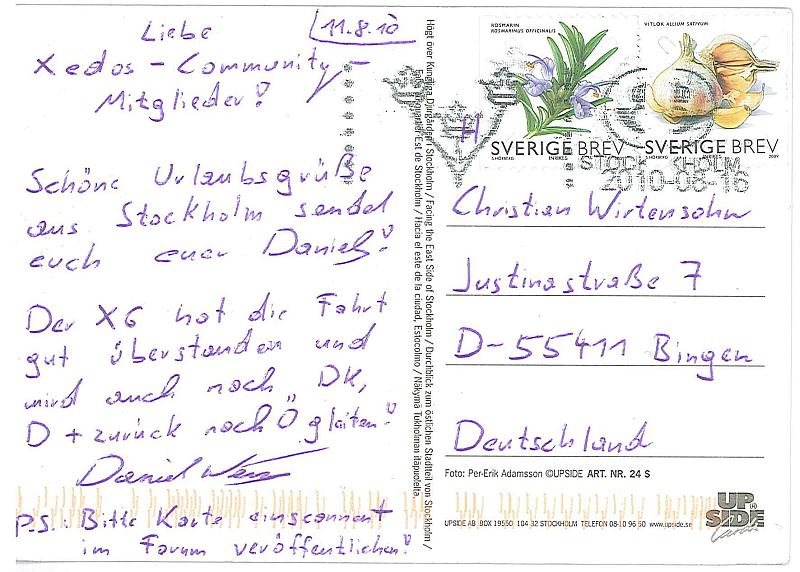 11.8.10
Liebe
Xedos - Community -
Mitglieder!
Schöne Urlaubsgrüße
aus Stockholm sendet
euch euer Daniel!
Der X6 hat die Fahrt
gut überstanden und
wird auch noch DK,
D + zurück nach Ö gleiten!
Daniel
P.S.: Bitte Karte einscannen +
im Forum veröffentlichen!
Högt över Kungliga Djurgården i Stockholm / Facing the East Side of Stockholm / Durchblick zum östlichen Stadtteil von Stockholm /
Est de Stockholm / Hacia el este de la ciudad, Estocolmo / Näkymä Tukholman itäpuolelta.
ROSMARIN
ROSMARINUS OFFICINALIS
SVERIGE BREV
S.HÖRBERG INRIKES
VITLÖK ALLIUM SATIVUM
SVERIGE BREV
S.HÖRBERG 2009
STOCKHOLM
2010-08-16
Christian Wirtensohn
Justinastraße 7
D-55411 Bingen
Deutschland
Foto: Per-Erik Adamsson ©UPSIDE ART. NR. 24 S
UPSIDE AB BOX 19550 104 32 STOCKHOLM TELEFON 08-10 96 50 www.upside.se
UP
SIDE